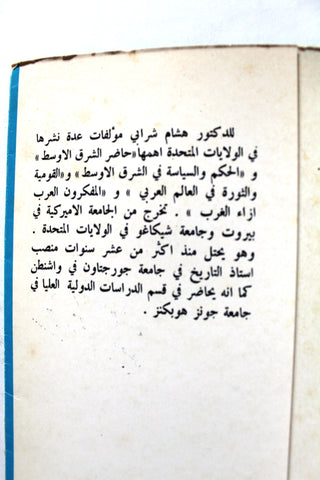 للدكتور هشام شرابي مؤلفات عدة نشرها
في الولايات المتحدة اهمها«حاضر الشرق الاوسط»
و «الحكم والسياسة في الشرق الاوسط» و«القومية
والثورة في العالم العربي » و «المفكرون العرب
ازاء الغرب » . تخرج من الجامعة الاميركية في
بيروت وجامعة شيكاغو في الولايات المتحدة .
وهو يحتل منذ اكثر من عشر سنوات منصب
استاذ التاريخ في جامعة جورجتاون في واشنطن
كما انه يحاضر في قسم الدراسات الدولية العليا في
جامعة جونز هوبكنز .